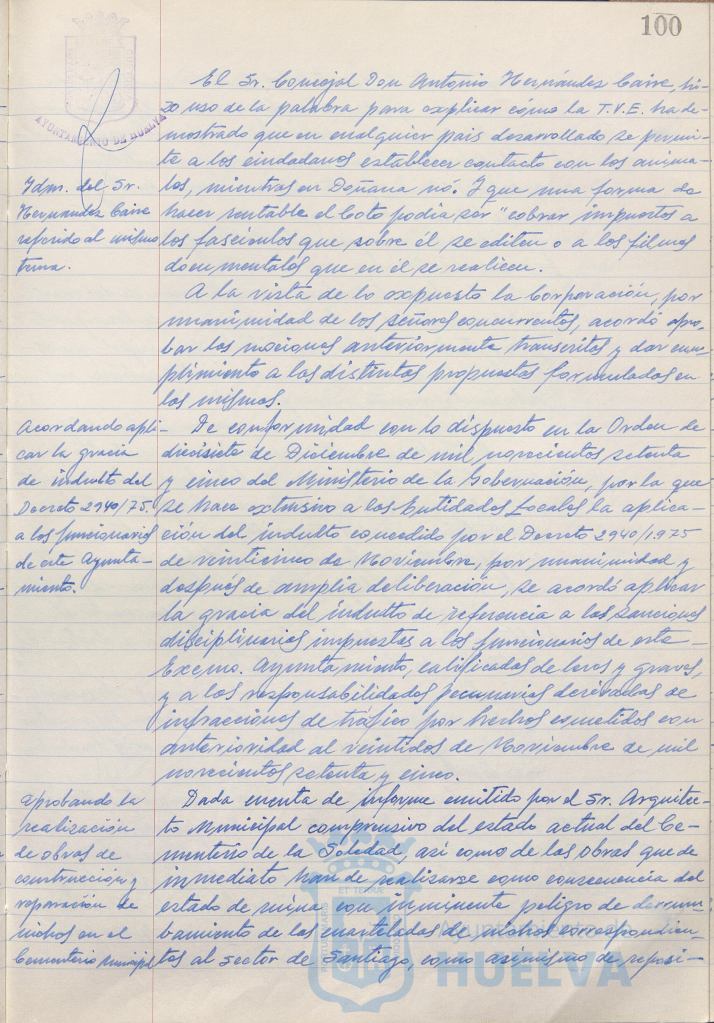 100
AYUNTAMIENTO DE HUELVA
El Sr. Concejal Don Antonio Hernández Caire, hi-
zo uso de la palabra para explicar cómo la T.V.E. ha de-
mostrado que en cualquier pais desarrollado se permi-
te a los ciudadanos establecer contacto con los anima-
les, mientras en Doñana nó. Y que una forma de
hacer rentable el Coto podia ser "cobrar impuestos a
los fascículos que sobre él se editen o a los filmes
documentales que en él se realicen.
Idm. del Sr.
Hernández Caire
referido al mismo
tema.
A la vista de lo expuesto la Corporación, por
unanimidad de los señores concurrentes, acordó apro-
bar las mociones anteriormente transcritas y dar cum-
plimiento a las distintas propuestas formuladas en
las mismas.
Acordando apli-
car la gracia
de indulto del
Decreto 2940/75.
a los funcionarios
de este Ayunta-
miento.
De conformidad con lo dispuesto en la Orden de
diecisiete de Diciembre de mil novecientos setenta
y cinco del Ministerio de la Gobernación, por la que
se hace extensivo a las Entidades Locales la aplica-
ción del indulto concedido por el Decreto 2940/1975
de veinticinco de Noviembre, por unanimidad y
después de amplia deliberación, se acordó aplicar
la gracia del indulto de referencia a las sanciones
disciplinarias impuestas a los funcionarios de este
Excmo. Ayuntamiento, calificadas de leves y graves,
y a las responsabilidades pecuniarias derivadas de
infracciones de tráfico por hechos cometidos con
anterioridad al veintidos de Noviembre de mil
novecientos setenta y cinco.
Aprobando la
realización
de obras de
construcción y
reparación de
nichos en el
Cementerio Municipal
Dada cuenta de informe emitido por el Sr. Arquitec-
to Municipal comprensivo del estado actual del Ce-
menterio de la Soledad, así como de las obras que de
inmediato han de realizarse como consecuencia del
estado de ruina con inminente peligro de derrum-
bamiento de las marteladas de nichos correspondien-
tes al sector de Santiago, como asimismo de reposi-
Ayuntamiento de
HUELVA